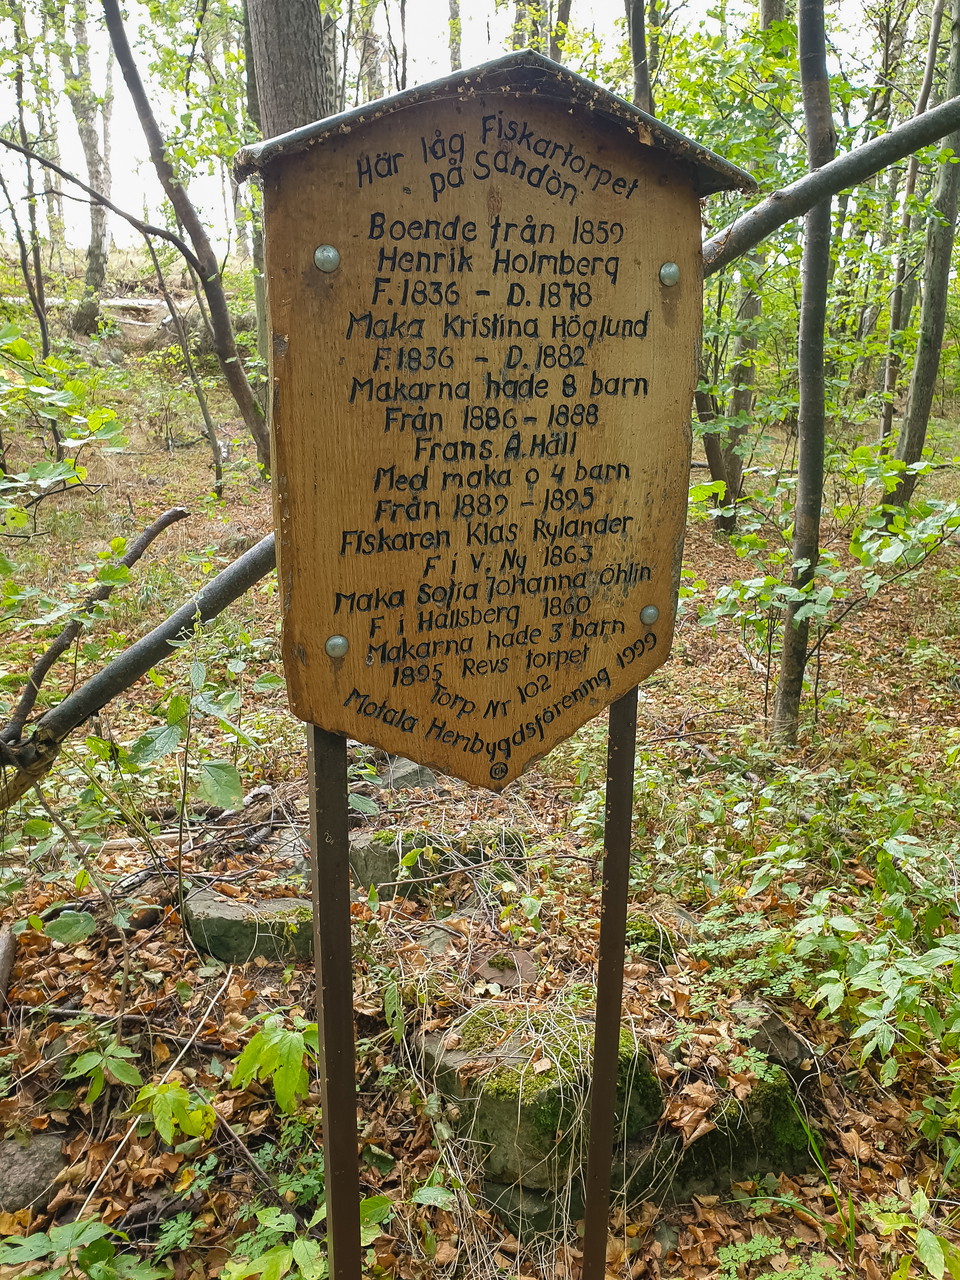 Här låg Fiskartorpet
på Sandön
Boende från 1859
Henrik Holmberg
F. 1836 - D. 1878
Maka Kristina Höglund
F. 1836 - D. 1882
Makarna hade 8 barn
Från 1886 - 1888
Frans. A. Häll
Med maka o 4 barn
Från 1889 - 1895
Fiskaren Klas Rylander
F i V. Ny 1863
Maka Sofia Johanna Öhlin
F i Hallsberg 1860
Makarna hade 3 barn
1895 Revs torpet
Torp Nr 102
Motala Hembygdsförening 1999